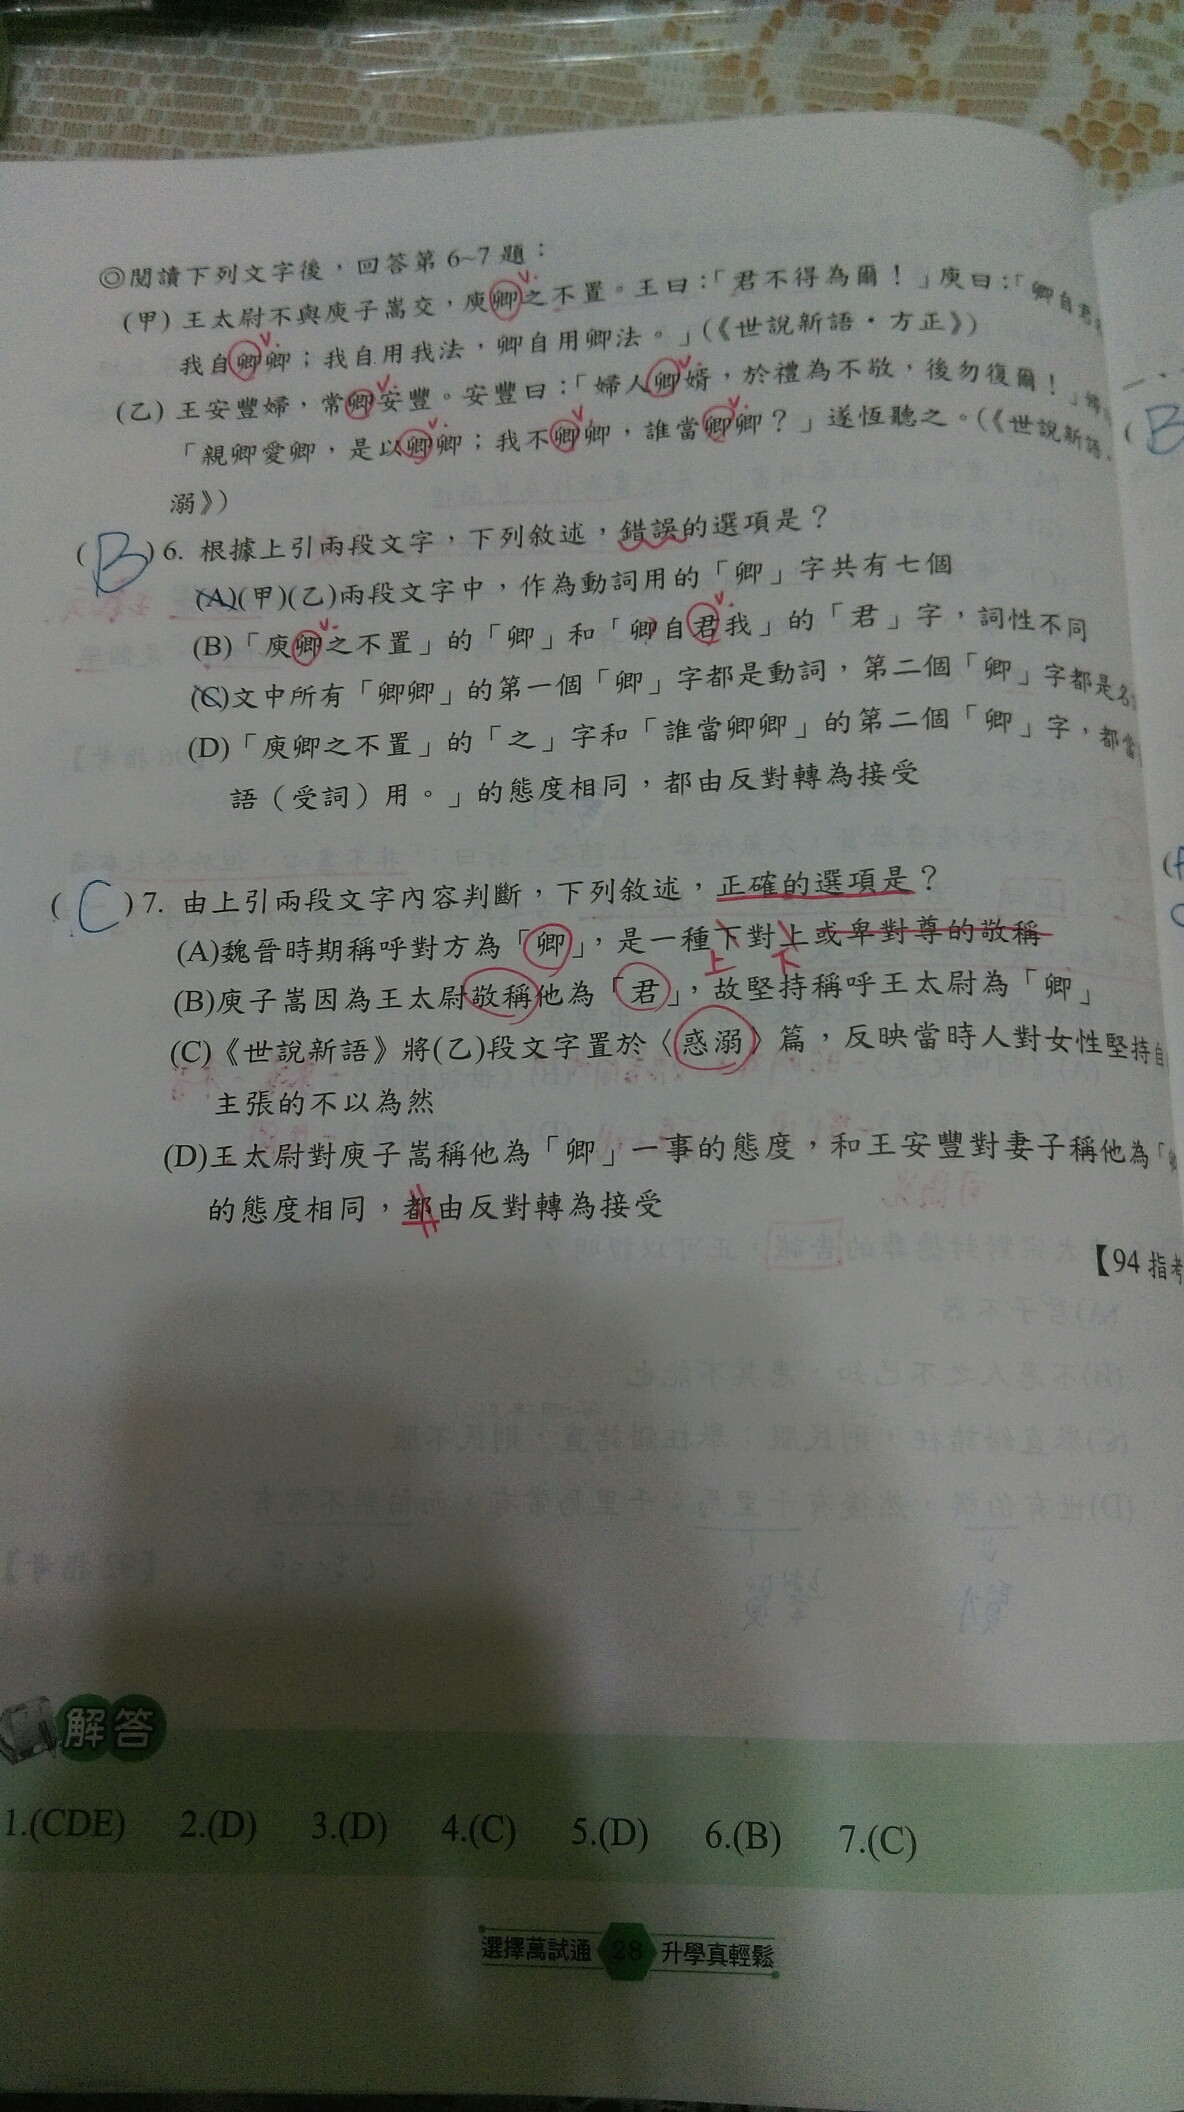 ◎閱讀下列文字後，回答第6~7題：
(甲) 王太尉不與庾子嵩交，庾卿之不置。王曰：「君不得為爾！」庾曰：「卿自君
我自卿卿；我自用我法，卿自用卿法。」(《世說新語・方正》)
(乙) 王安豐婦，常卿安豐。安豐曰：「婦人卿婿，於禮為不敬，後勿復爾！」
「親卿愛卿，是以卿卿；我不卿卿，誰當卿卿？」遂恆聽之。(《世說新語
溺》)
(B) 6. 根據上引兩段文字，下列敘述，錯誤的選項是？
(A)(甲)(乙)兩段文字中，作為動詞用的「卿」字共有七個
(B)「庾卿之不置」的「卿」和「卿自君我」的「君」字，詞性不同
(C)文中所有「卿卿」的第一個「卿」字都是動詞，第二個「卿」字都是名
(D)「庾卿之不置」的「之」字和「誰當卿卿」的第二個「卿」字，都當
語（受詞）用。」的態度相同，都由反對轉為接受
(C) 7. 由上引兩段文字內容判斷，下列敘述，正確的選項是？
(A)魏晉時期稱呼對方為「卿」，是一種下對上或卑對尊的敬稱
上 下
(B)庾子嵩因為王太尉敬稱他為「君」，故堅持稱呼王太尉為「卿」
(C)《世說新語》將(乙)段文字置於〈惑溺〉篇，反映當時人對女性堅持自
主張的不以為然
(D)王太尉對庾子嵩稱他為「卿」一事的態度，和王安豐對妻子稱他為「
的態度相同，都由反對轉為接受
【94 指考
解答
1.(CDE) 2.(D) 3.(D) 4.(C) 5.(D) 6.(B) 7.(C)
選擇萬試通 28 升學真輕鬆